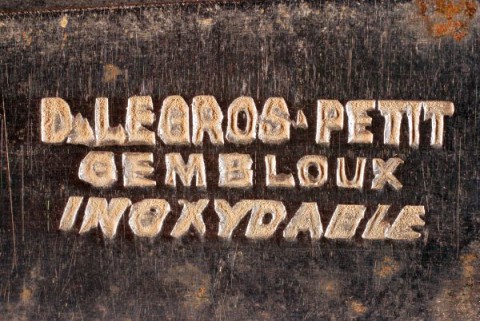 D. LEGROS-PETIT
GEMBLOUX
INOXYDABLE